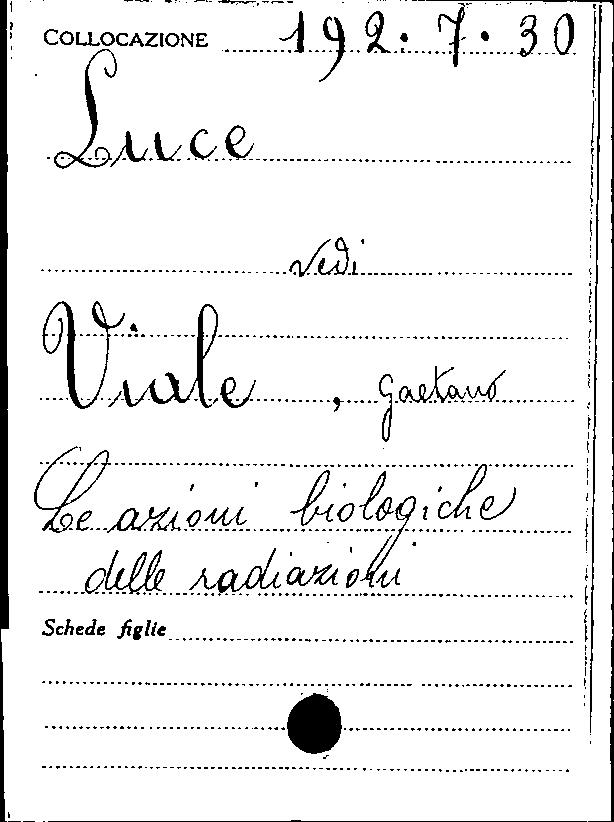 COLLOCAZIONE 192.7.30
Luce
vedi
Viale, Gaetano
Le azioni biologiche
delle radiazioni
Schede figlie